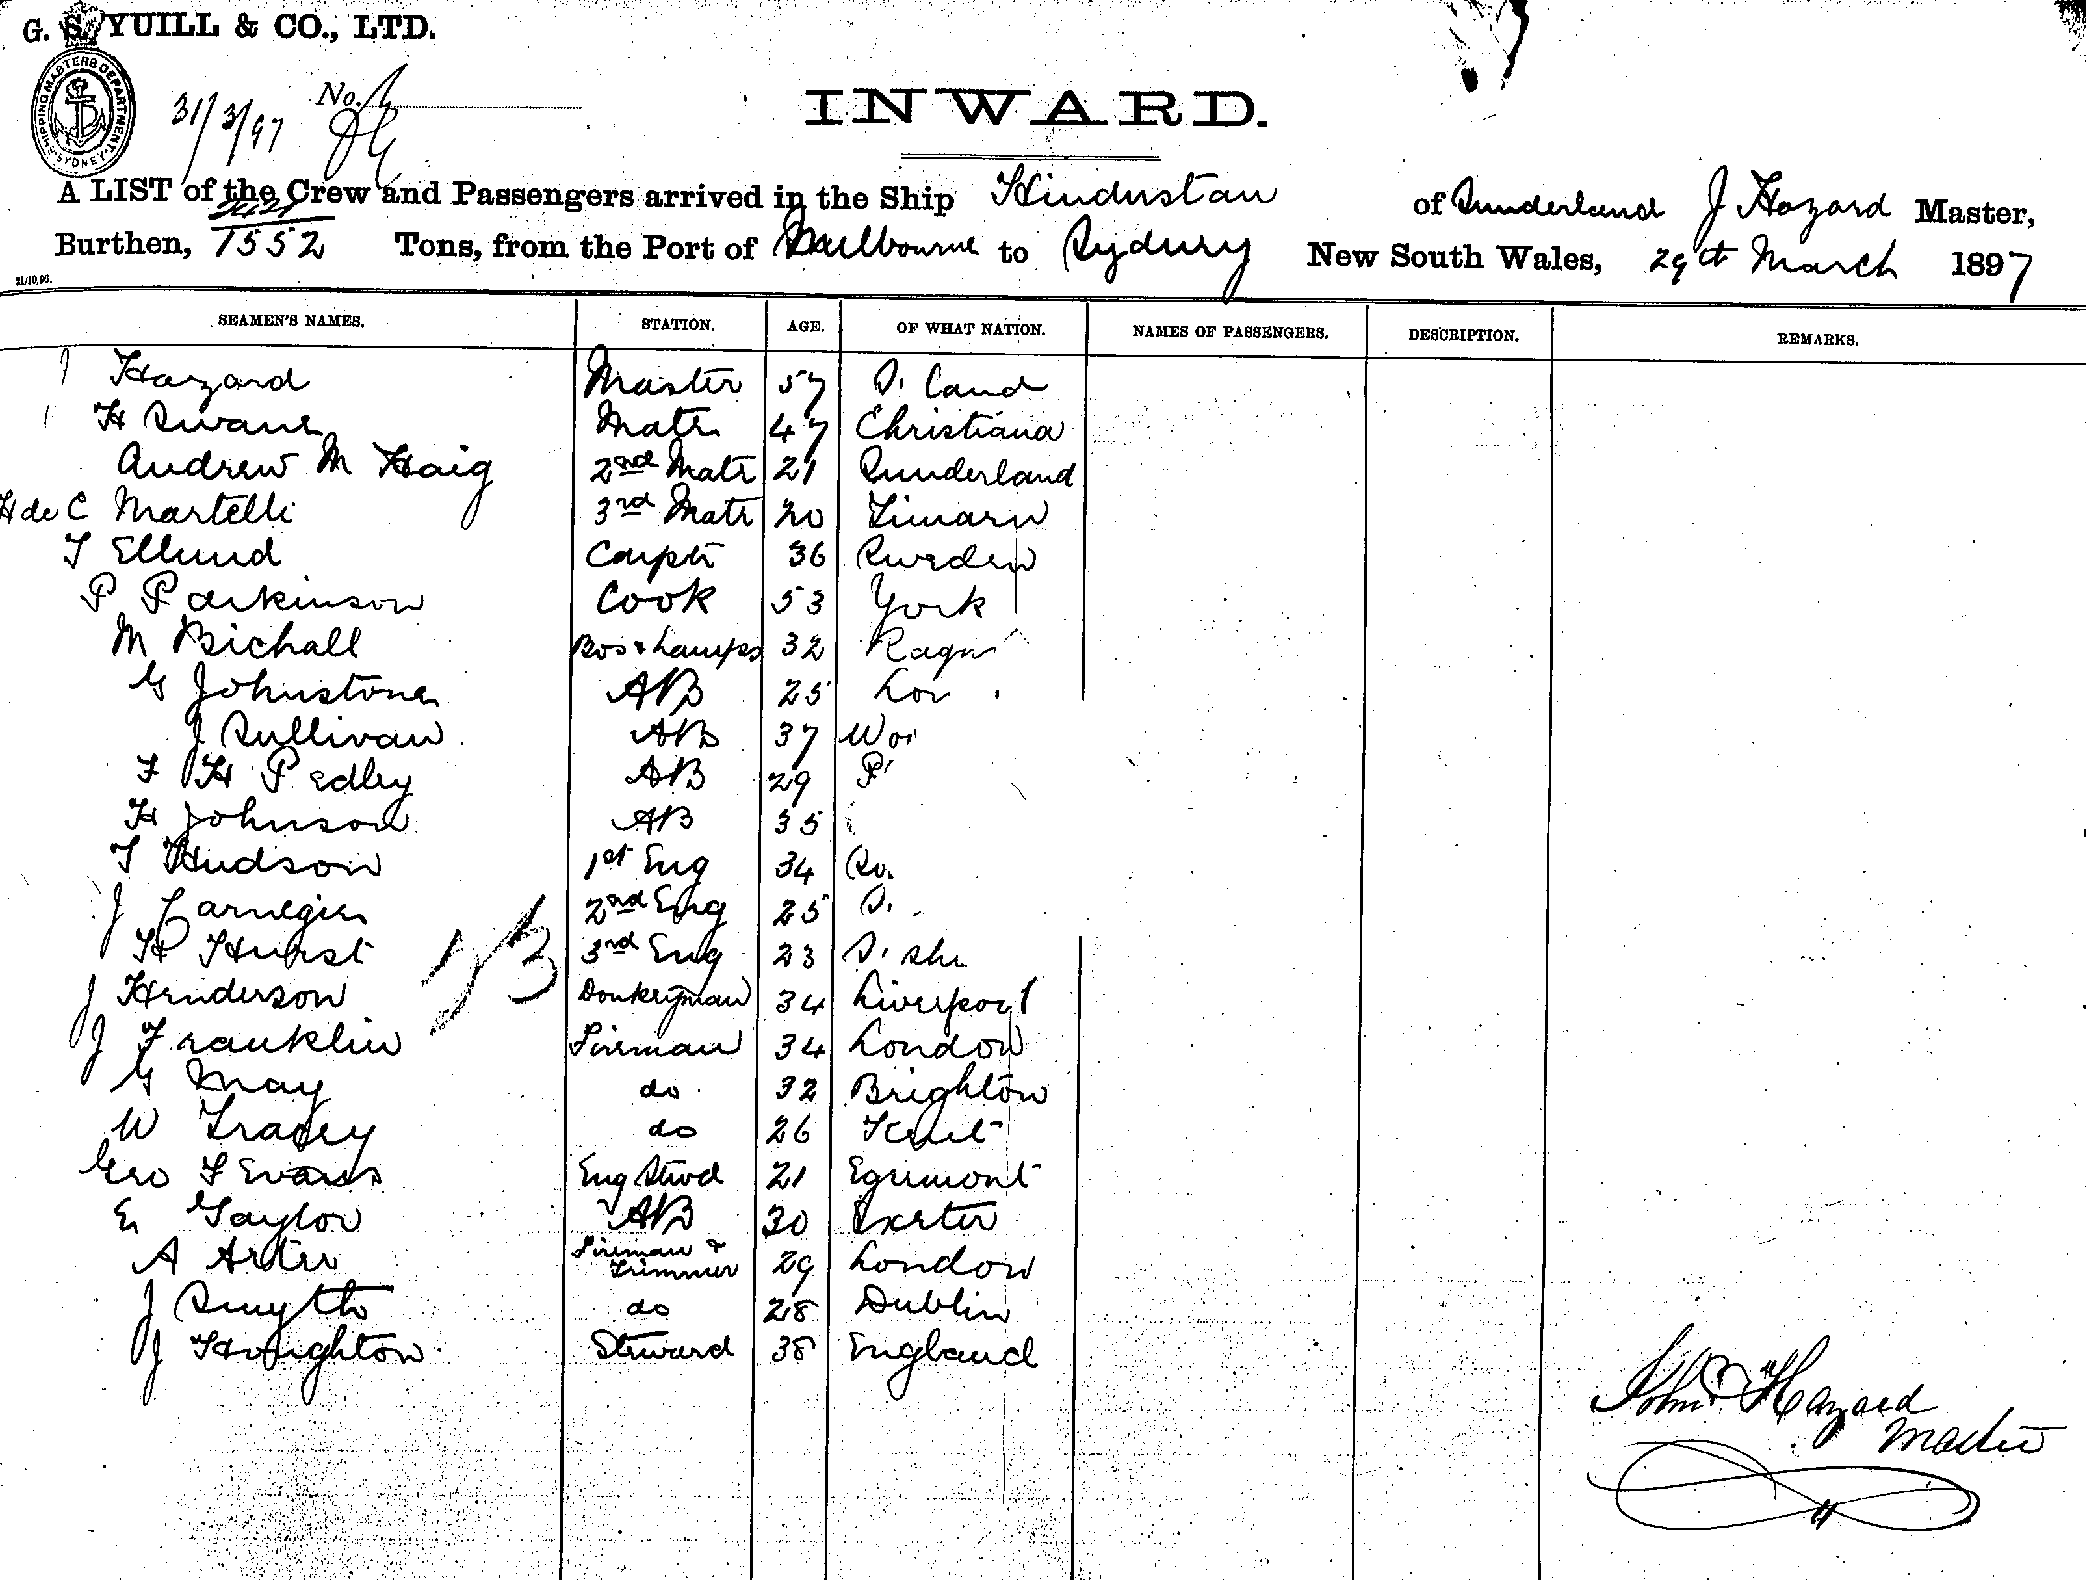 G. S. YUILL & CO., LTD.
SHIPPING MASTERS DEPARTMENT. SYDNEY
31/3/97 No.
INWARD.
A LIST of the Crew and Passengers arrived in the Ship Hindustan of Sunderland J Hazard Master,
Burthen, 1552 Tons, from the Port of Melbourne to Sydney New South Wales, 29th March 1897
21/10/96.
SEAMEN'S NAMES. STATION. AGE. OF WHAT NATION. NAMES OF PASSENGERS. DESCRIPTION. REMARKS.
J Hazard Master 57 S. Land
H Swane Mate 47 Christiana
Andrew M Haig 2nd Mate 21 Sunderland
H de C Martelli 3rd Mate 20 Timaru
T Ellund Carptr 36 Sweden
P Parkinson Cook 53 York
M Bichall Bos & Lamps 32
G Johnstone AB 25 Lon
J Sullivan AB 37 Wor
F H Pedley AB 29 P
H Johnson AB 35
T Hudson 1st Eng 34 So.
J Carnegie 2nd Eng 25 S.
H Hurst 3rd Eng 23 S. She
J Henderson Donkeyman 34 Liverpool
J Franklin Fireman 34 London
G May do 32 Brighton
W Tracey do 26 Kent
Geo T Evans Eng Stwd 21 Egremont
E Taylor AB 30 Exeter
A Arter Fireman & Trimmer 29 London
J Smyth do 28 Dublin
J Houghton Steward 38 England
John Hazard
Master